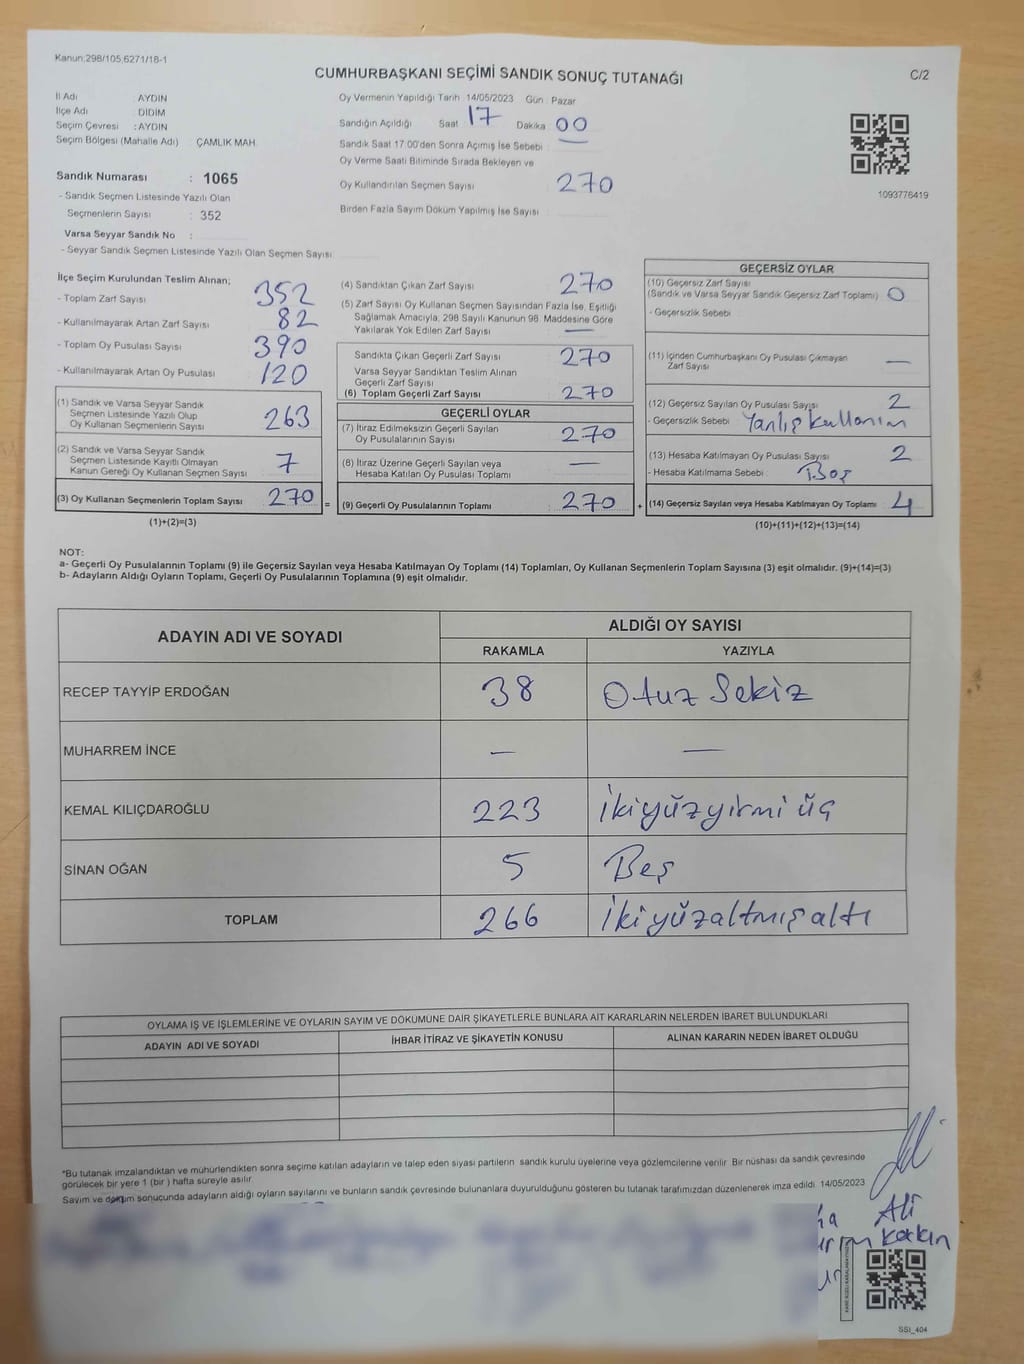 Kanun:298/105,6271/18-1
CUMHURBAŞKANI SEÇİMİ SANDIK SONUÇ TUTANAĞI
C/2
İl Adı : AYDIN
İlçe Adı : DİDİM
Seçim Çevresi : AYDIN
Seçim Bölgesi (Mahalle Adı) : ÇAMLIK MAH.
Sandık Numarası : 1065
- Sandık Seçmen Listesinde Yazılı Olan
Seçmenlerin Sayısı : 352
Varsa Seyyar Sandık No :
- Seyyar Sandık Seçmen Listesinde Yazılı Olan Seçmen Sayısı
Oy Vermenin Yapıldığı Tarih 14/05/2023 Gün : Pazar
Sandığın Açıldığı Saat 17 Dakika 00
Sandık Saat 17:00'den Sonra Açımış İse Sebebi : —
Oy Verme Saati Bitiminde Sırada Bekleyen ve
Oy Kullandırılan Seçmen Sayısı 270
Birden Fazla Sayım Döküm Yapılmış İse Sayısı :
1093776419
İlçe Seçim Kurulundan Teslim Alınan;
- Toplam Zarf Sayısı 352
- Kullanılmayarak Artan Zarf Sayısı 82
- Toplam Oy Pusulası Sayısı 390
- Kullanılmayarak Artan Oy Pusulası 120
(1) Sandık ve Varsa Seyyar Sandık
Seçmen Listesinde Yazılı Olup
Oy Kullanan Seçmenlerin Sayısı 263
(2) Sandık ve Varsa Seyyar Sandık
Seçmen Listesinde Kayıtlı Olmayan
Kanun Gereği Oy Kullanan Seçmen Sayısı 7
(3) Oy Kullanan Seçmenlerin Toplam Sayısı 270 =
(1)+(2)=(3)
(4) Sandıktan Çıkan Zarf Sayısı 270
(5) Zarf Sayısı Oy Kullanan Seçmen Sayısından Fazla İse, Eşitliği
Sağlamak Amacıyla, 298 Sayılı Kanunun 98. Maddesine Göre
Yakılarak Yok Edilen Zarf Sayısı —
Sandıkta Çıkan Geçerli Zarf Sayısı 270
Varsa Seyyar Sandıktan Teslim Alınan
Geçerli Zarf Sayısı
(6) Toplam Geçerli Zarf Sayısı 270
GEÇERLİ OYLAR
(7) İtiraz Edilmeksizin Geçerli Sayılan
Oy Pusulalarının Sayısı 270
(8) İtiraz Üzerine Geçerli Sayılan veya
Hesaba Katılan Oy Pusulası Toplamı —
(9) Geçerli Oy Pusulalarının Toplamı 270 +
GEÇERSİZ OYLAR
(10) Geçersiz Zarf Sayısı
(Sandık ve Varsa Seyyar Sandık Geçersiz Zarf Toplamı) 0
- Geçersizlik Sebebi :
(11) İçinden Cumhurbaşkanı Oy Pusulası Çıkmayan
Zarf Sayısı —
(12) Geçersiz Sayılan Oy Pusulası Sayısı 2
- Geçersizlik Sebebi : Yanlış kullanım
(13) Hesaba Katılmayan Oy Pusulası Sayısı 2
- Hesaba Katılmama Sebebi : Boş
(14) Geçersiz Sayılan veya Hesaba Katılmayan Oy Toplamı 4
(10)+(11)+(12)+(13)=(14)
NOT:
a- Geçerli Oy Pusulalarının Toplamı (9) ile Geçersiz Sayılan veya Hesaba Katılmayan Oy Toplamı (14) Toplamları, Oy Kullanan Seçmenlerin Toplam Sayısına (3) eşit olmalıdır. (9)+(14)=(3)
b- Adayların Aldığı Oyların Toplamı, Geçerli Oy Pusulalarının Toplamına (9) eşit olmalıdır.
ADAYIN ADI VE SOYADI
ALDIĞI OY SAYISI
RAKAMLA YAZIYLA
RECEP TAYYİP ERDOĞAN 38 Otuz Sekiz
MUHARREM İNCE — —
KEMAL KILIÇDAROĞLU 223 İkiyüzyirmi üç
SİNAN OĞAN 5 Beş
TOPLAM 266 İkiyüzaltmışaltı
OYLAMA İŞ VE İŞLEMLERİNE VE OYLARIN SAYIM VE DÖKÜMÜNE DAİR ŞİKAYETLERLE BUNLARA AİT KARARLARIN NELERDEN İBARET BULUNDUKLARI
ADAYIN ADI VE SOYADI İHBAR İTİRAZ VE ŞİKAYETİN KONUSU ALINAN KARARIN NEDEN İBARET OLDUĞU
*Bu tutanak imzalandıktan ve mühürlendikten sonra seçime katılan adayların ve talep eden siyasi partilerin sandık kurulu üyelerine veya gözlemcilerine verilir. Bir nüshası da sandık çevresinde
görülecek bir yere 1 (bir) hafta süreyle asılır.
Sayım ve döküm sonucunda adayların aldığı oyların sayılarını ve bunların sandık çevresinde bulunanlara duyurulduğunu gösteren bu tutanak tarafımızdan düzenlenerek imza edildi. 14/05/2023
Ali
SSİ_404